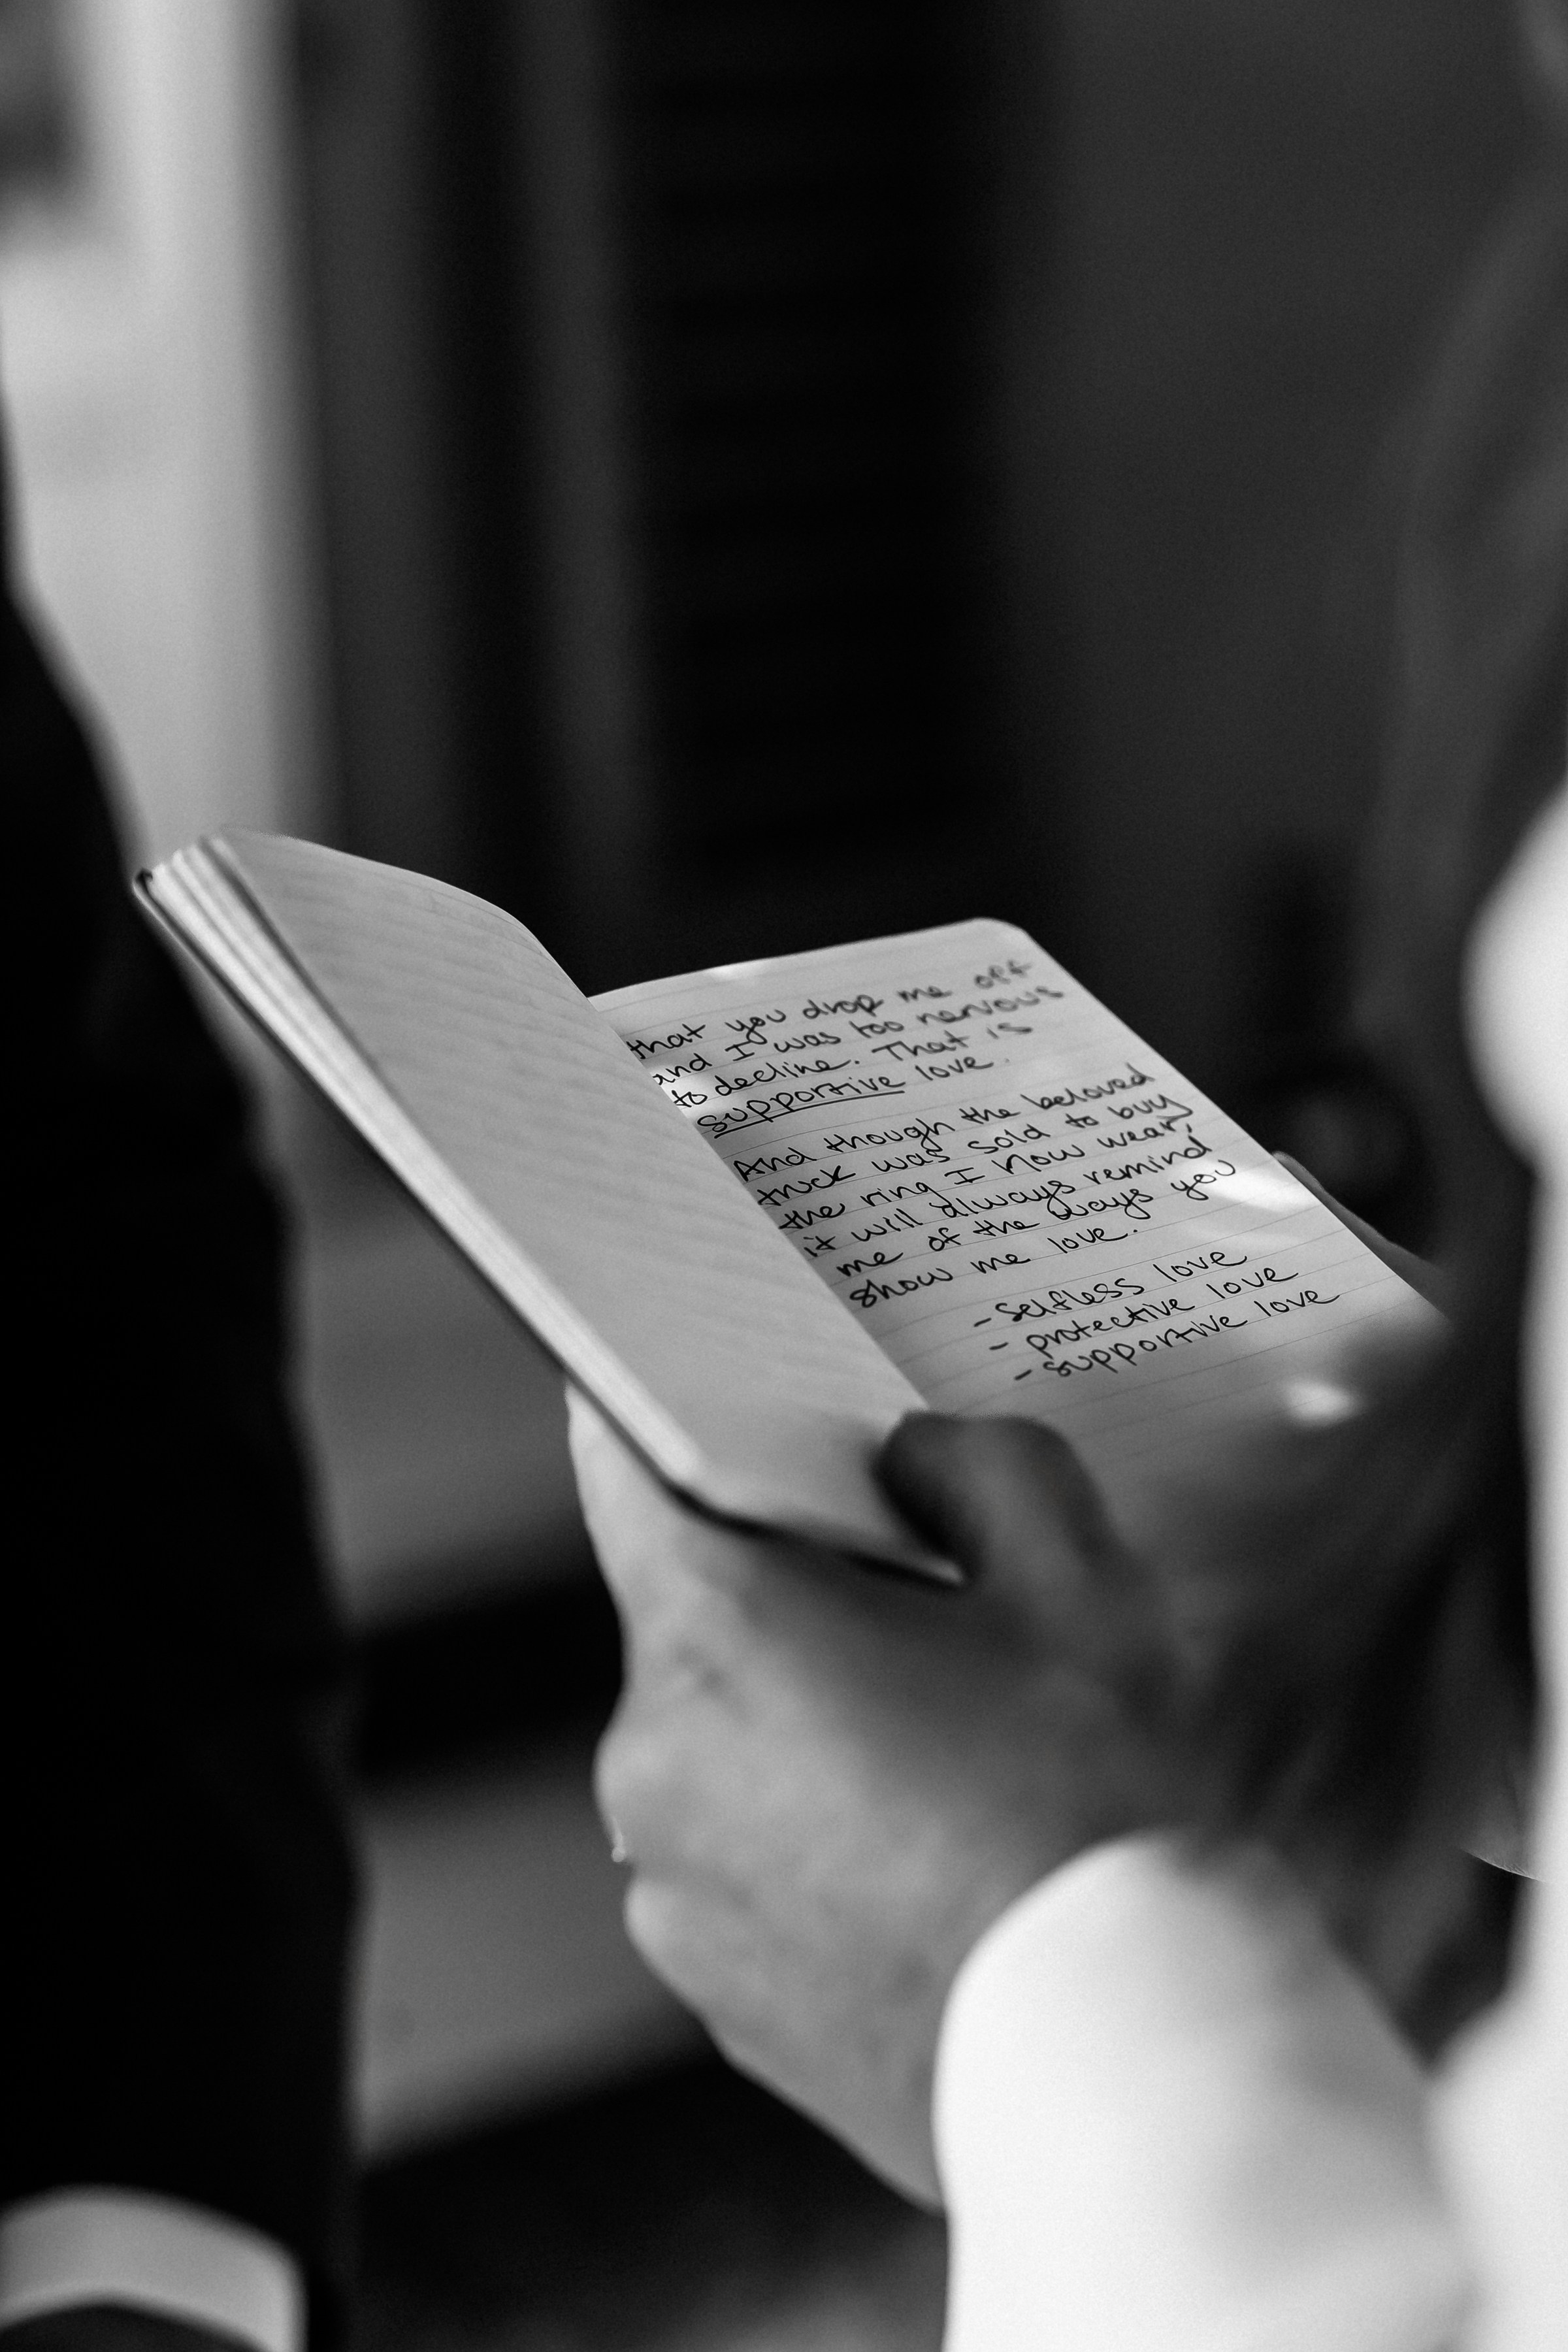 that you drop me off
and I was too nervous
to decline. That is
supportive love.
And though the beloved
truck was sold to buy
the ring I now wear,
it will always remind
me of the ways you
show me love.
- selfless love
- protective love
- supportive love